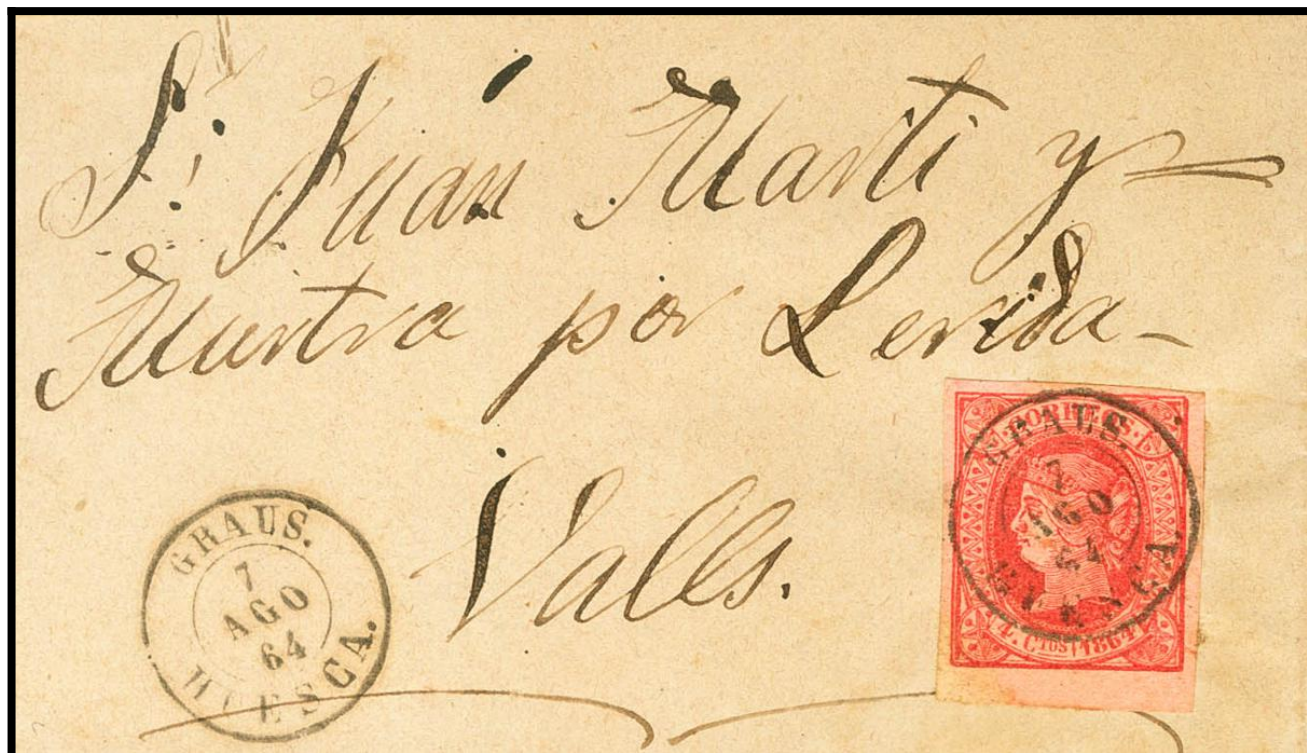 Sr. Juan Marti y
Muntra por Lerida-
Valls.
GRAUS.
7
AGO
64
HUESCA.
CORREOS.
GRAUS.
7
AGO
64
HUESCA.
4. Ctos 1864